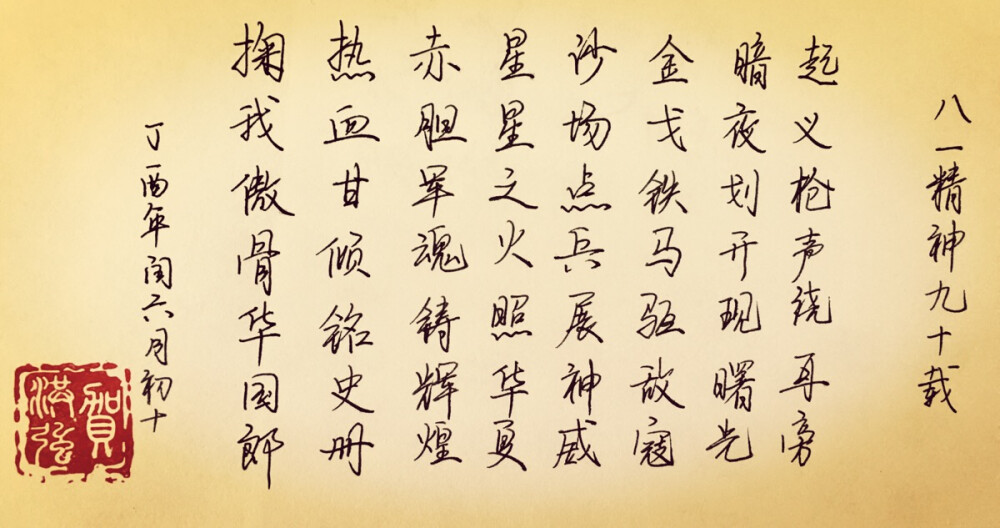 八一精神九十载
起义枪声绕耳旁
暗夜划开现曙光
金戈铁马驱敌寇
沙场点兵展神威
星星之火照华夏
赤胆军魂铸辉煌
热血甘倾铭史册
掬我傲骨华国郎
丁酉年闰六月初十
贺洪弦